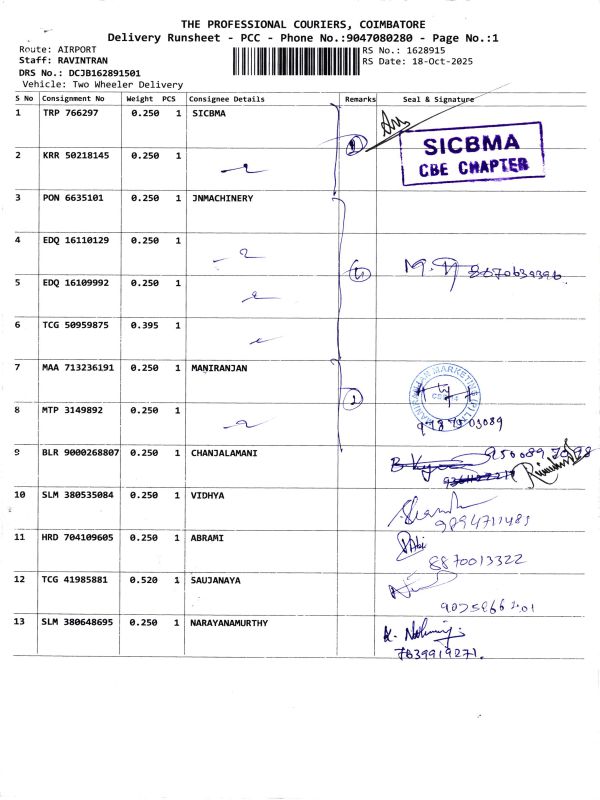 THE PROFESSIONAL COURIERS, COIMBATORE
Delivery Runsheet - PCC - Phone No.:9047080280 - Page No.:1
Route: AIRPORT
RS No.: 1628915
Staff: RAVINTRAN
RS Date: 18-Oct-2025
DRS No.: DCJB162891501
Vehicle: Two Wheeler Delivery
S No Consignment No Weight PCS Consignee Details Remarks Seal & Signature
1 TRP 766297 0.250 1 SICBMA
SICBMA
CBE CHAPTER
2 KRR 50218145 0.250 1
3 PON 6635101 0.250 1 JNMACHINERY
4 EDQ 16110129 0.250 1
5 EDQ 16109992 0.250 1
6 TCG 50959875 0.395 1
7 MAA 713236191 0.250 1 MANIRANJAN
8 MTP 3149892 0.250 1
9 BLR 9000268807 0.250 1 CHANJALAMANI
10 SLM 380535084 0.250 1 VIDHYA
9894711485
11 HRD 704109605 0.250 1 ABRAMI
8870013322
12 TCG 41985881 0.520 1 SAUJANAYA
13 SLM 380648695 0.250 1 NARAYANAMURTHY
7639919271.